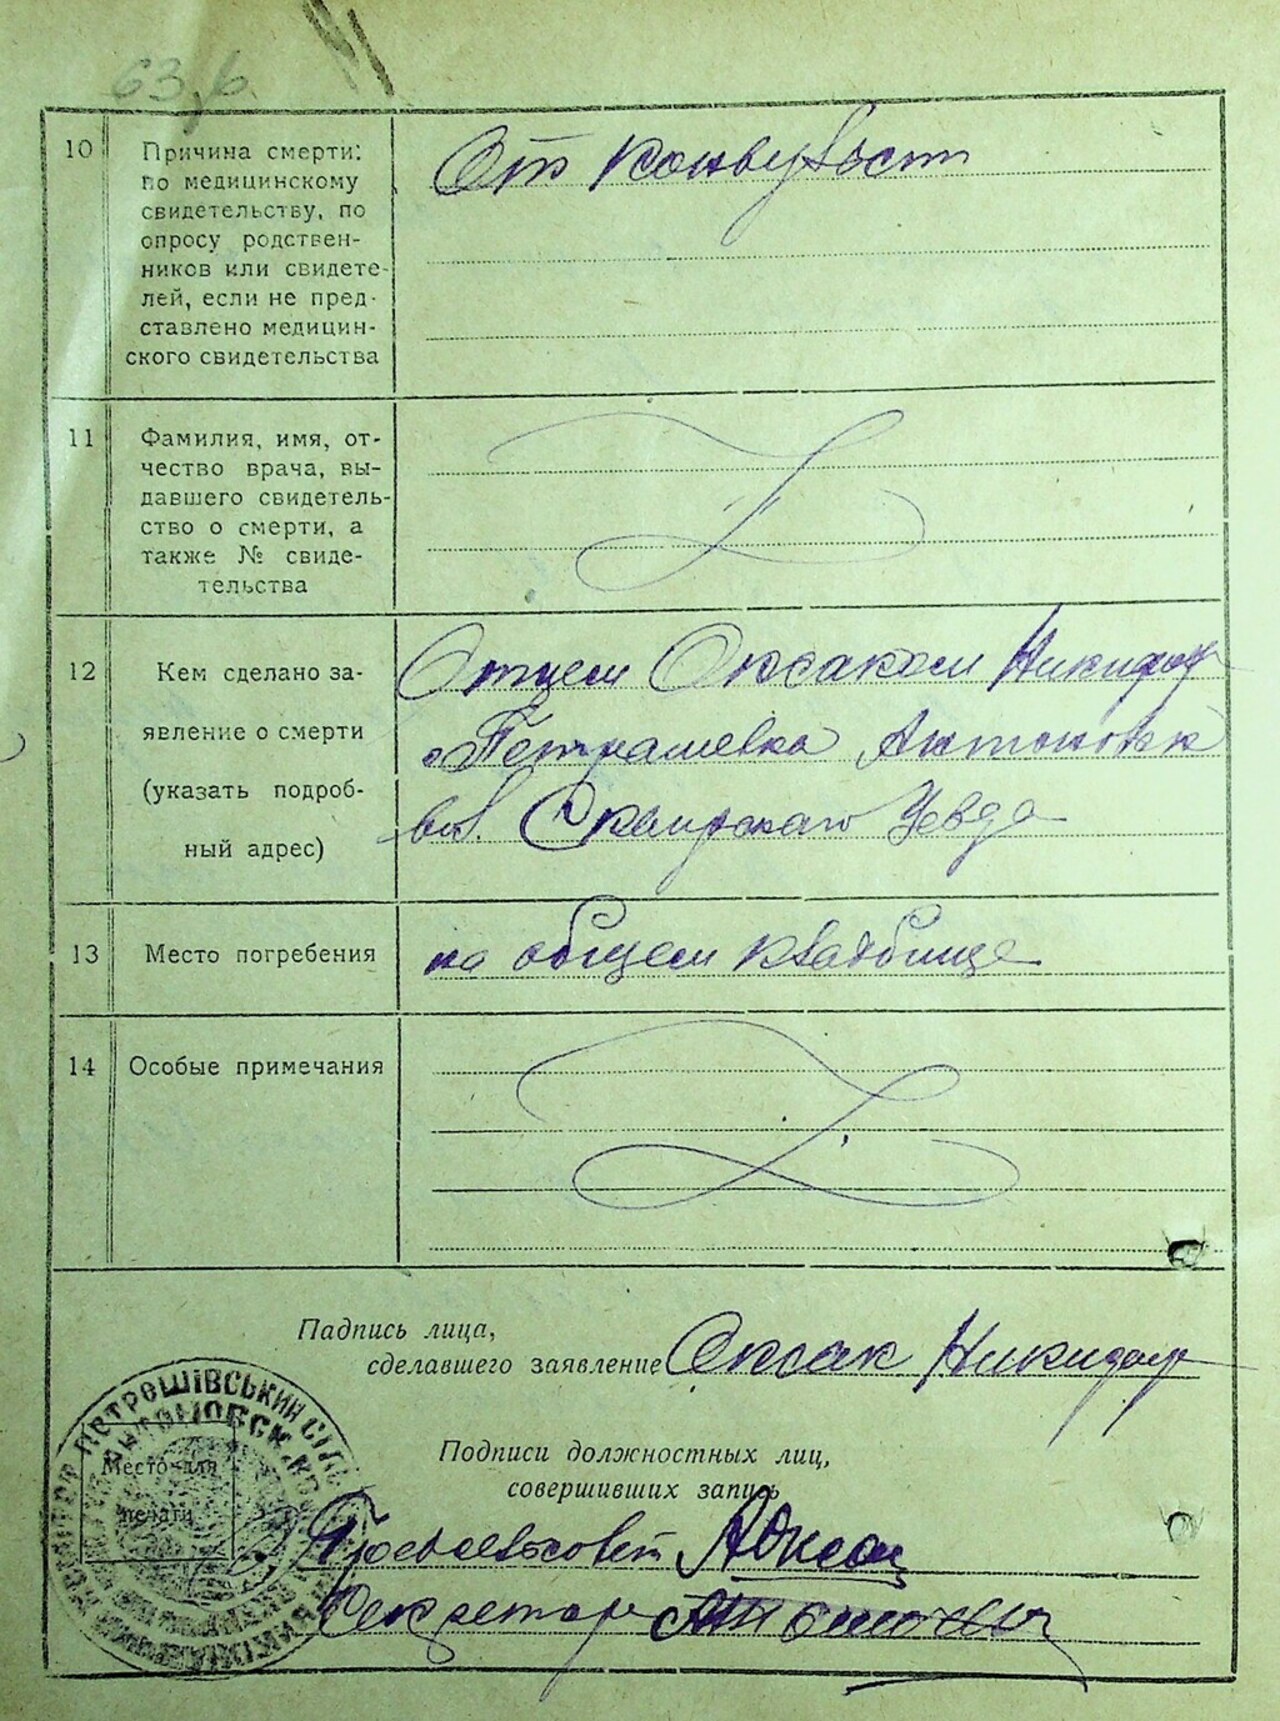 63, б
10
Причина смерти:
по медицинскому
свидетельству, по
опросу родствен-
ников или свидете-
лей, если не пред-
ставлено медицин-
ского свидетельства
От конвульст
11
Фамилия, имя, от-
чество врача, вы-
давшего свидетель-
ство о смерти, а
также № свиде-
тельства
12
Кем сделано за-
явление о смерти
(указать подроб-
ный адрес)
Отцем Оксаком Никифор
с Петрашевка Антоновск
вол. Сквирскаго Уезда
13
Место погребения
на общем кладбище
14
Особые примечания
Падпись лица,
сделавшего заявление Оксак Никифор
Подписи должностных лиц,
совершивших запись
Место для
печати
ПЕТРОШІВСЬКИЙ СІЛЬ
Предсельсовет
Секретарь